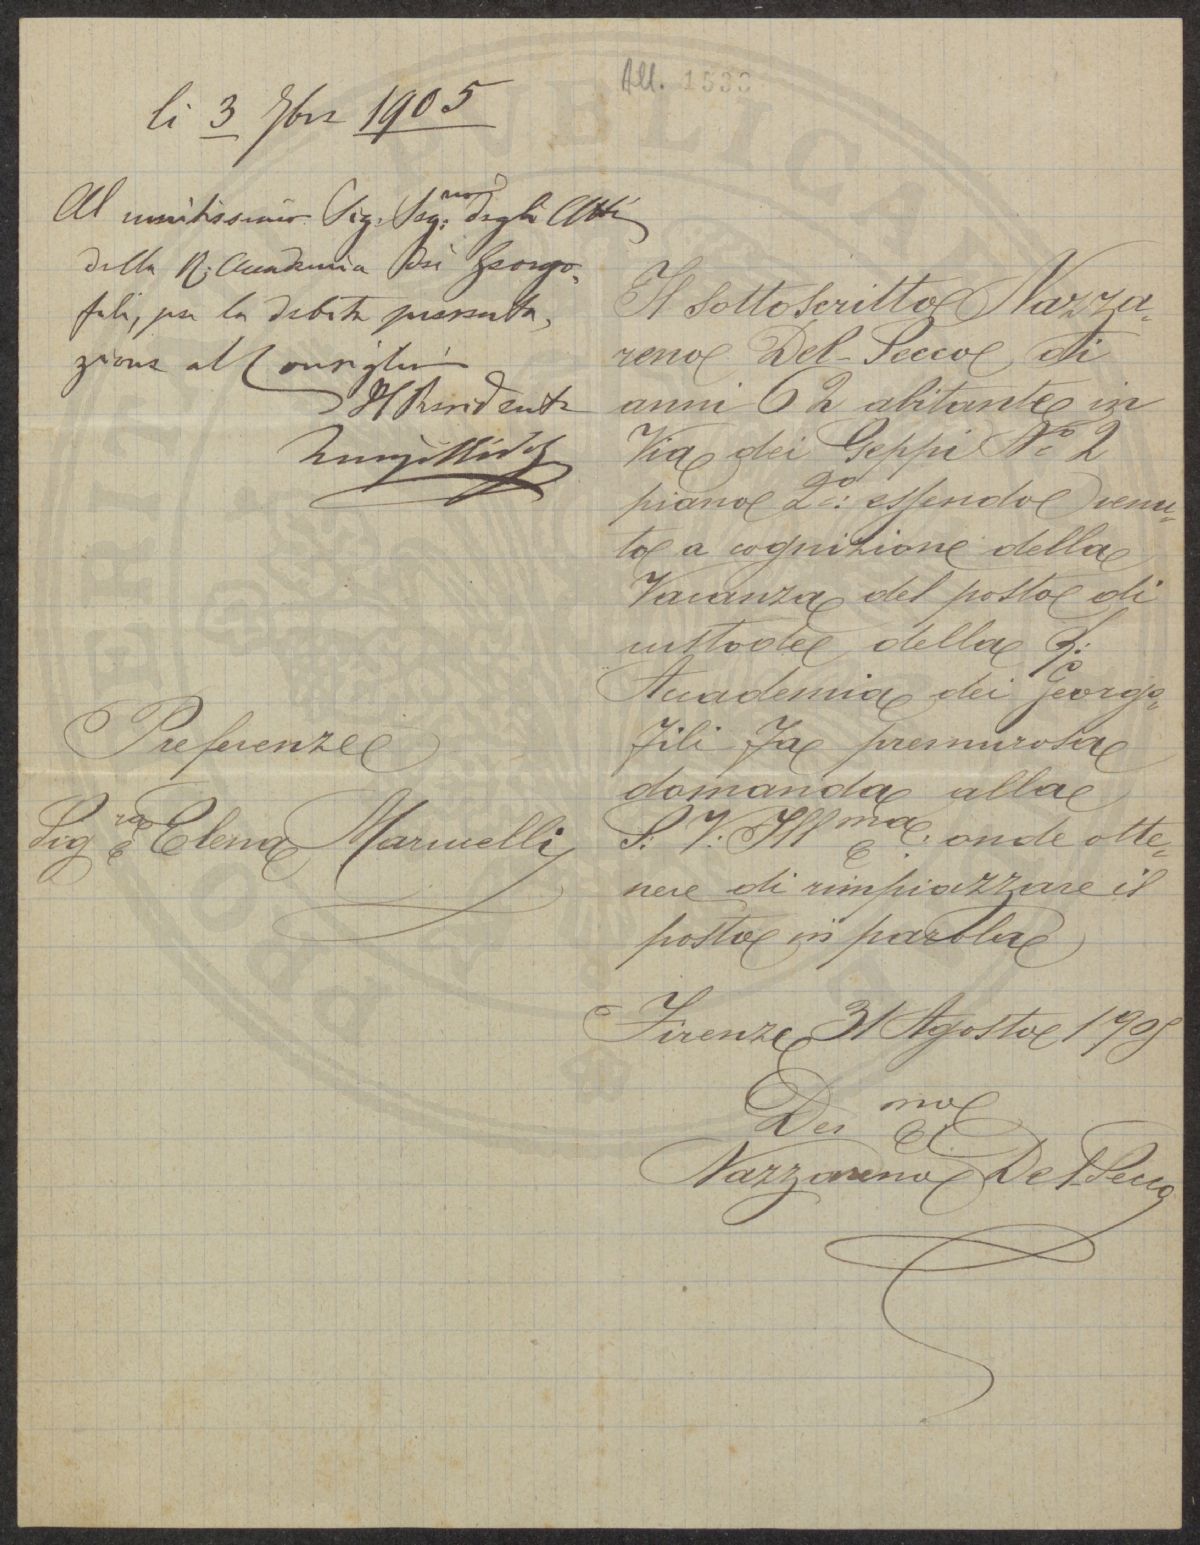 All. 1533
li 3 7bre 1905
Al meritissimo Sig. Seg:rio degli Atti
della R. Accademia dei Georgo-
fili, per la debita presenta-
zione al Consiglio
Il Presidente
Il sottoscritto Nazza-
reno Del-Secco di
anni 62 abitante in
Via dei Geppi No 2
piano 2o: essendo venu-
to a cognizione della
Vacanza del posto di
custode della R:
Accademia dei Georgo-
fili Fa premurosa
domanda alla
S. V. Illma. onde otte-
nere di rimpiazzare il
posto in parola
Firenze 31 Agosto 1905
Dev mo
Nazzareno Del-Secco
Preferenze
Sigra Elena Marucelli